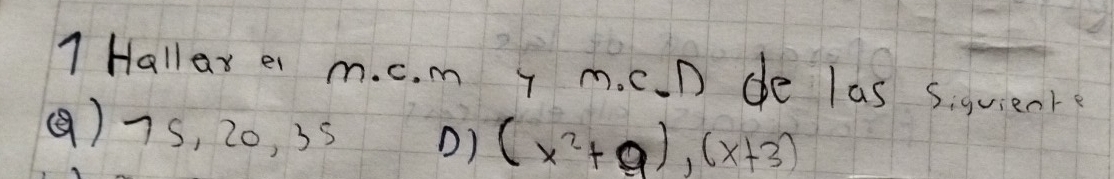 1 Hallar el m.c.m y m.c.D de las siguiente
a) 15, 20, 35 D) (x²+9), (x+3)